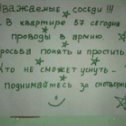 Уважаемые соседи !!!
В квартире 57 сегодня
проводы в армию.
Просьба понять и простить
Кто не сможет уснуть -
поднимайтесь за снотворным